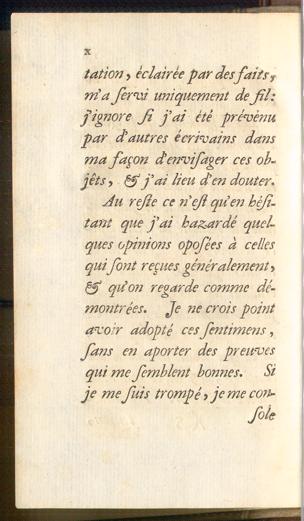 x
tation, éclairée par des faits,
m'a ſervi uniquement de fil:
j'ignore ſi j'ai été prévenu
par d'autres écrivains dans
ma façon d'enviſager ces ob-
jêts, & j'ai lieu d'en douter.
Au reſte ce n'eſt qu'en héſi-
tant que j'ai hazardé quel-
ques opinions opoſées à celles
qui ſont reçues généralement,
& qu'on regarde comme dé-
montrées. Je ne crois point
avoir adopté ces ſentimens,
ſans en aporter des preuves
qui me ſemblent bonnes. Si
je me ſuis trompé, je me con-
ſole